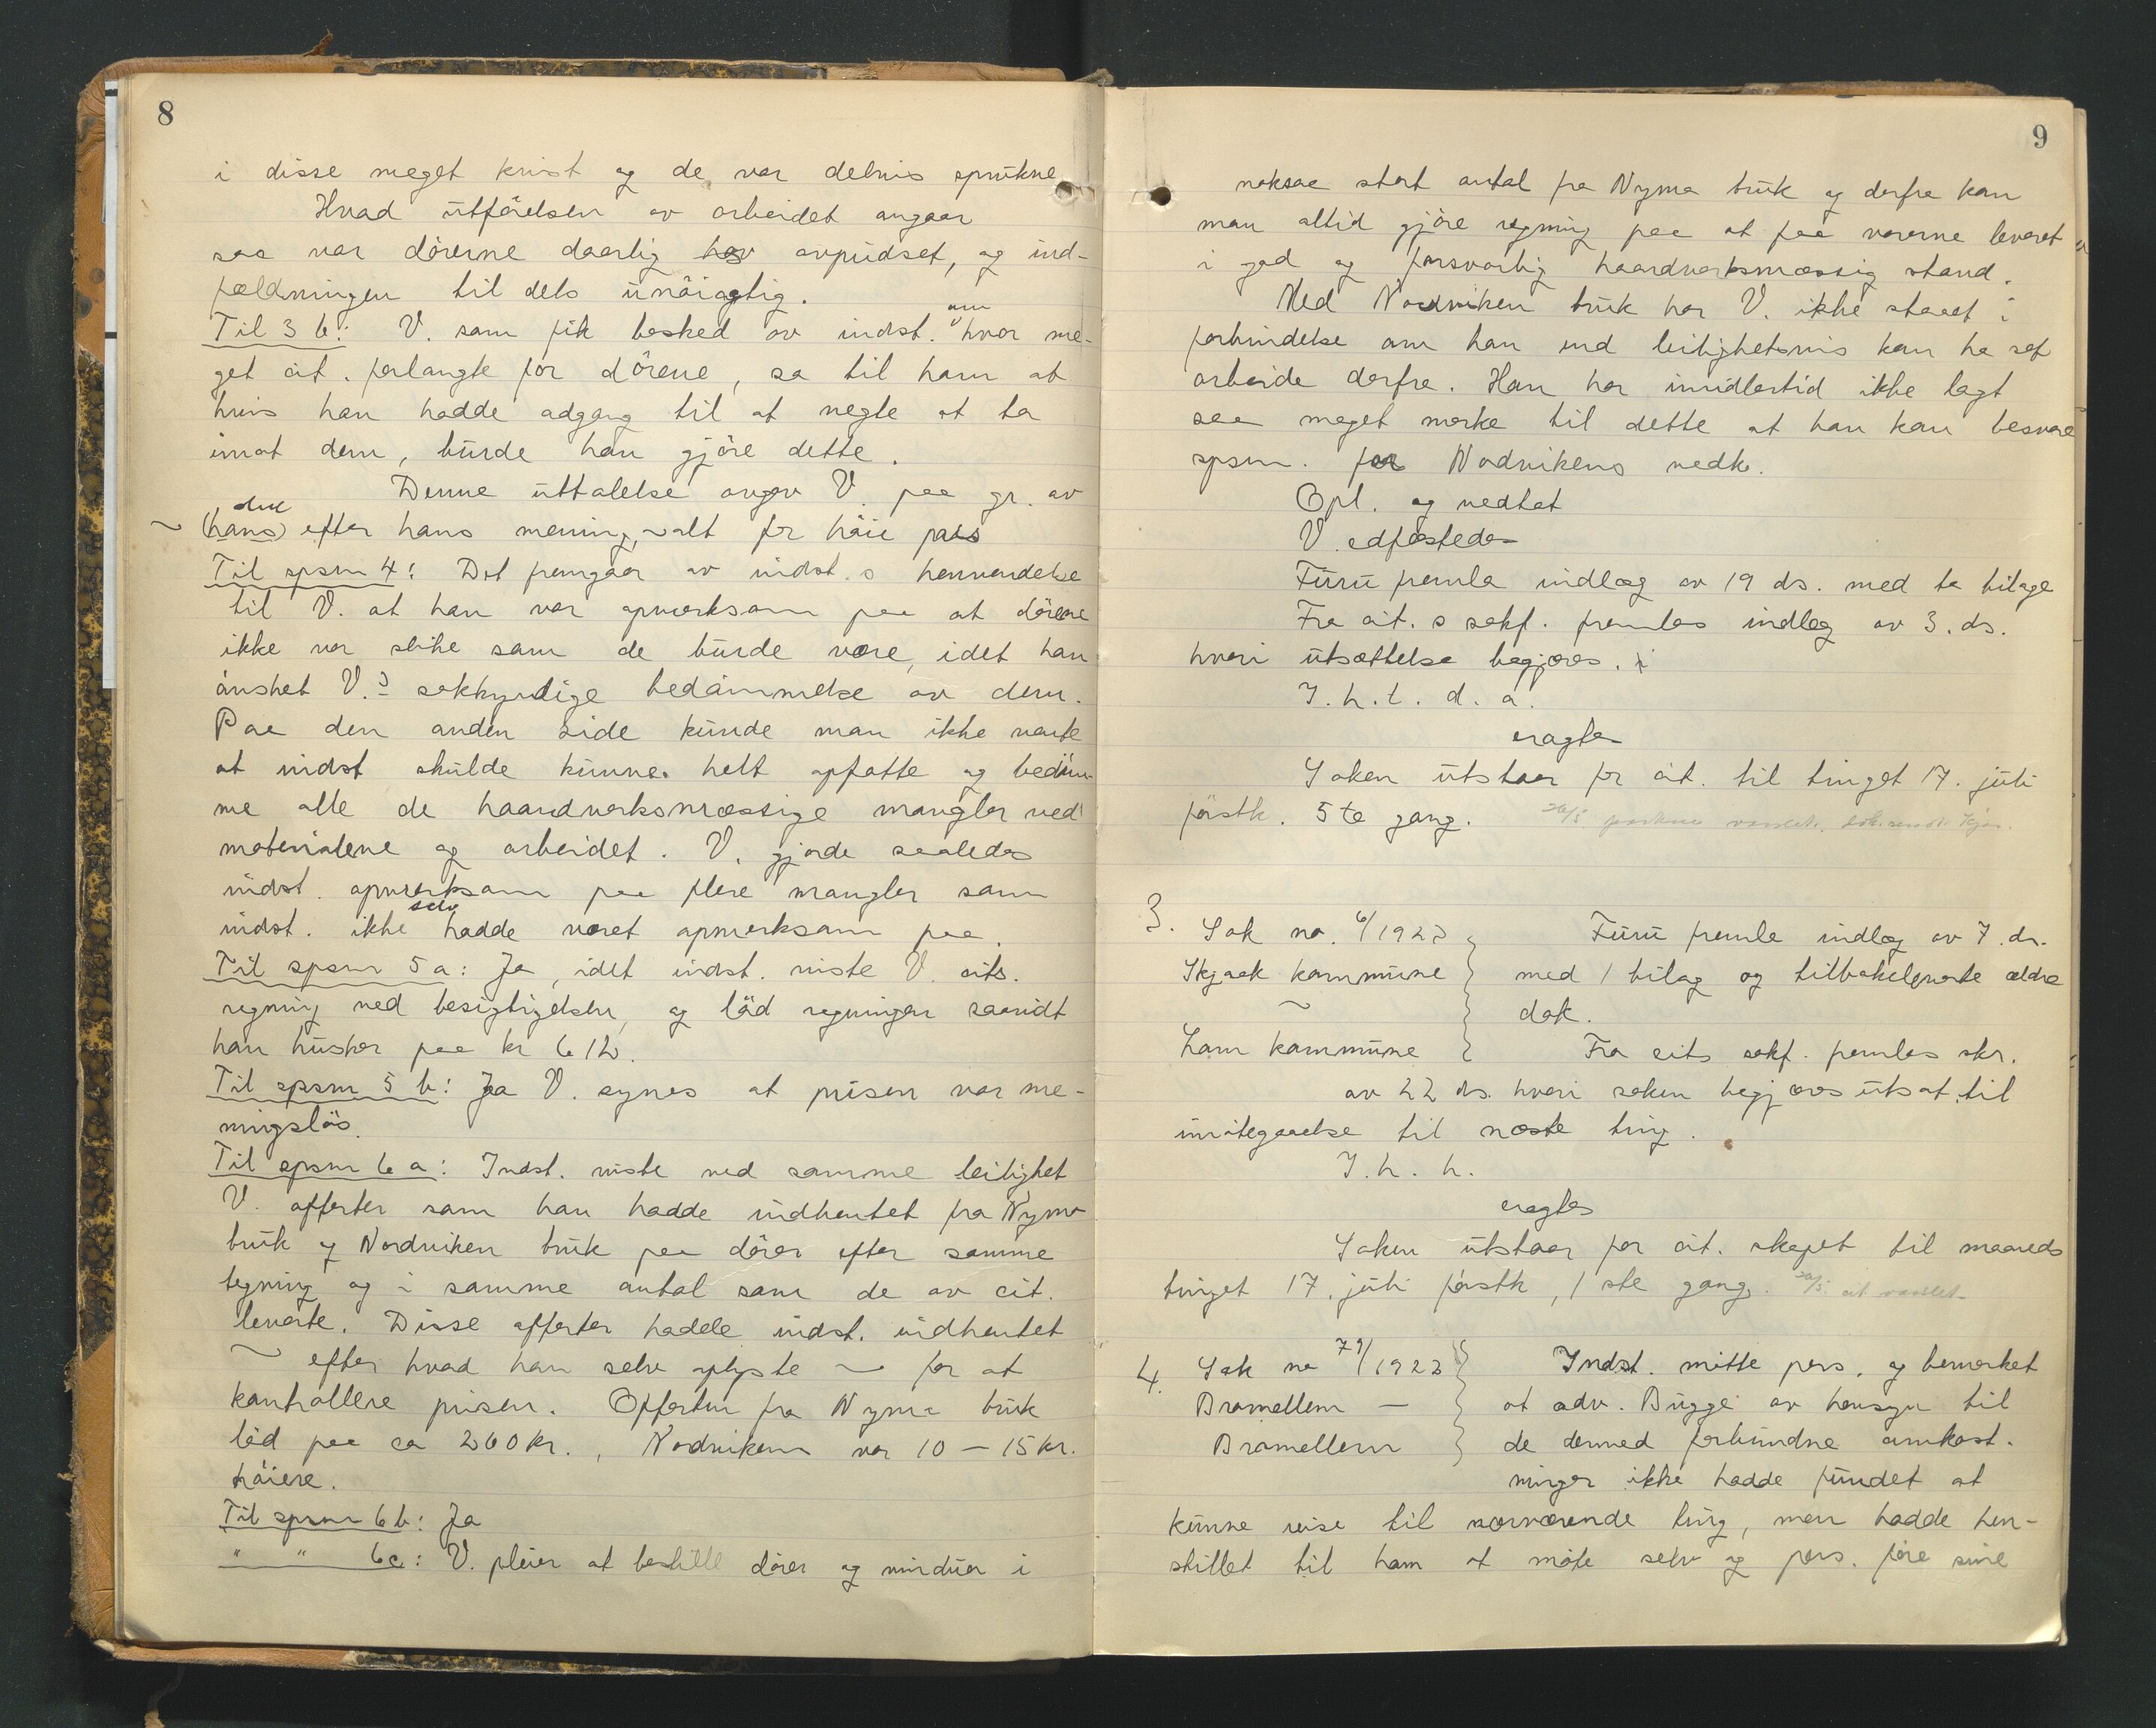 8
i disse meget kvist og de var delvis sprukne
Hvad utförelsen av arbeidet angaar
saa var dörerne daarlig hov avpudset, og ind-
fældningen til dels unöiagtig.
Til 3 b: V. som fik besked av indst. om hvor me-
get cit. forlangte for dörene, sa til ham at
hvis han hadde adgang til at negte at ta
imot dem, burde han gjöre dette.
Denne uttalelse avgav V. paa gr. av
~ (hans) den efter hans mening, ~ alt for höie pris
Til spsm 4: Det fremgaar av indst.s henvendelse
til V. at han var opmerksom paa at dörene
ikke var slike som de burde være, idet han
önsket V.s sakkyndige bedömmelse av dem.
Paa den anden side kunde man ikke vente
at indst skulde kunne helt opfatte og bedöm-
me alle de haandverksmæssige mangler ved
materialene og arbeidet. V. gjorde saaledes
indst. opmerksom paa flere mangler som
indst. ikke selv hadde været opmerksom paa.
Til spsm 5 a: Ja, idet indst. viste V. cits.
regning ved besigtigelsen, og löd regningen saavidt
han husker paa kr 612.
Til spsm 5 b: Ja V. synes at prisen var me-
ningslös.
Til spsm 6 a: Indst. viste ved samme leilighet
V. offerter som han hadde indhentet fra Nymo
bruk og Nordviken bruk paa dörer efter samme
tegning og i samme antal som de av cit.
leverte. Disse offerter hadde indst. indhentet
~ efter hvad han selv oplyste ~ for at
kontrollere prisen. Offerten fra Nymo bruk
löd paa ca 260 kr., Nordvikens var 10 – 15 kr.
höiere.
Til spsm 6 b: Ja
" " 6c: V. pleier at bestille dörer og vinduer i
9
noksaa stort antal fra Nymo bruk og derfra kan
man altid gjöre regning paa at faa varerne levert
i god og forsvarlig haandverksmæssig stand.
Med Nordviken bruk har V. ikke staaet i
forbindelse om han end leilighetsvis kan ha set
arbeide derfra. Han har imidlertid ikke lagt
saa meget merke til dette at han kan besvare
spsm. for Nordvikens vedk.
Opl. og vedtat
V. edfæstedes
Furu fremla indlæg av 19 ds. med to bilage
Fra cit.s sakf. fremlaes indlæg av 3. ds.
hvori utsættelse begjæres.
I. h. t. d. a.
eragtes
Saken utstaar for cit. til tinget 17. juli
förstk. 5te gang. 26/5
3. Sak no. 6/1923 Furu fremla indlæg av 7. ds.
Skjaak kommune med 1 bilag og tilbakeleverte ældre
~ dok.
Lom kommune Fra cits sakf. fremlaes skr.
av 22 ds. hvori saken begjæres utsat til
imötegaaelse til næste ting.
I. h. h.
eragtes
Saken utstaar for cit. skapet til maaneds
tinget 17. juli förstk, 1ste gang. 26/5. cit varslet
4. Sak no 79/1923 Indst. mötte pers. og bemerket
Bramellem — at adv. Bugge av hensyn til
Bramellem de dermed forbundne omkost.
ninger ikke hadde fundet at
kunne reise til nærværende ting, men hadde hen-
stillet til ham at möte selv og pers. före sine